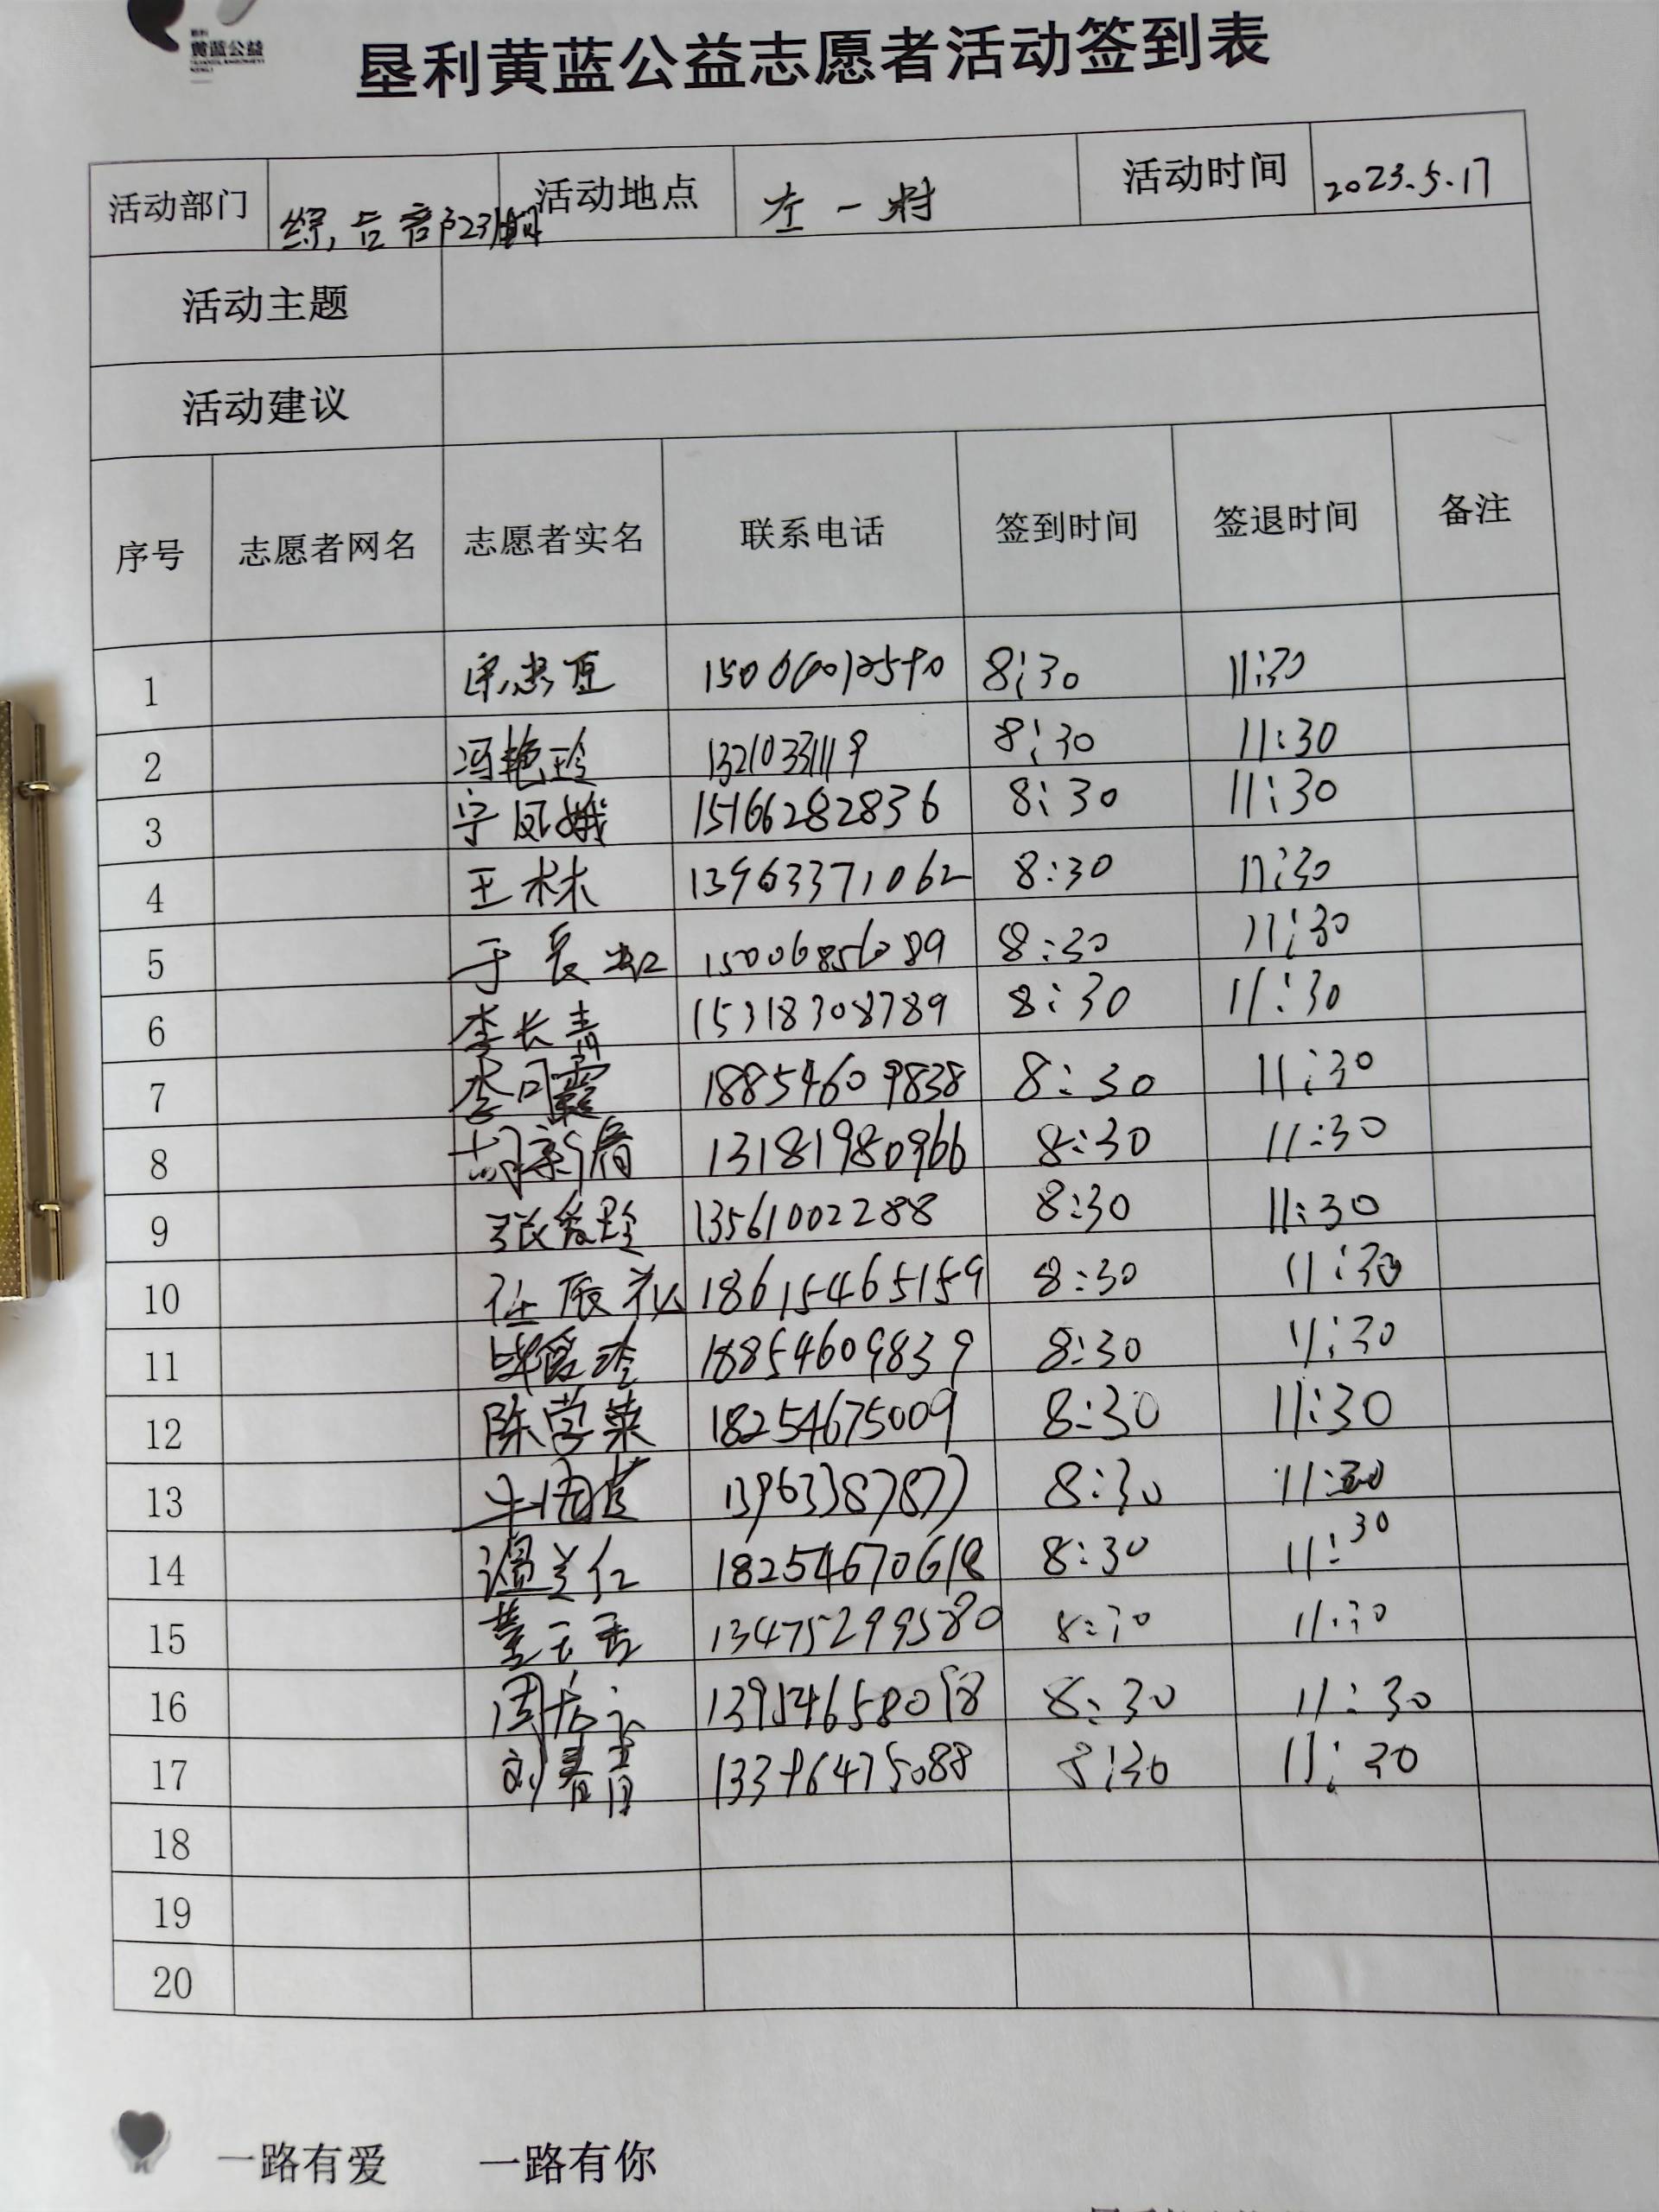 黄蓝公益
垦利黄蓝公益志愿者活动签到表
活动部门 活动地点 左一村 活动时间 2023.5.17
活动主题
活动建议
序号 志愿者网名 志愿者实名 联系电话 签到时间 签退时间 备注
1 8:30 11:30
2 冯艳玲 1321033119 8:30 11:30
3 宁凤娥 15166282836 8:30 11:30
4 王林 13963371062 8:30 11:30
5 15006856089 8:30 11:30
6 李长青 15318308789 8:30 11:30
7 李同霞 18854609838 8:30 11:30
8 13181980966 8:30 11:30
9 张爱玲 13561002288 8:30 11:30
10 18615465159 8:30 11:30
11 18854609839 8:30 11:30
12 陈学荣 18254675009 8:30 11:30
13 13963387877 8:30 11:30
14 18254670618 8:30 11:30
15 13475299580 8:30 11:30
16 13954658098 8:30 11:30
17 刘春青 13396475088 8:30 11:30
18
19
20
一路有爱 一路有你